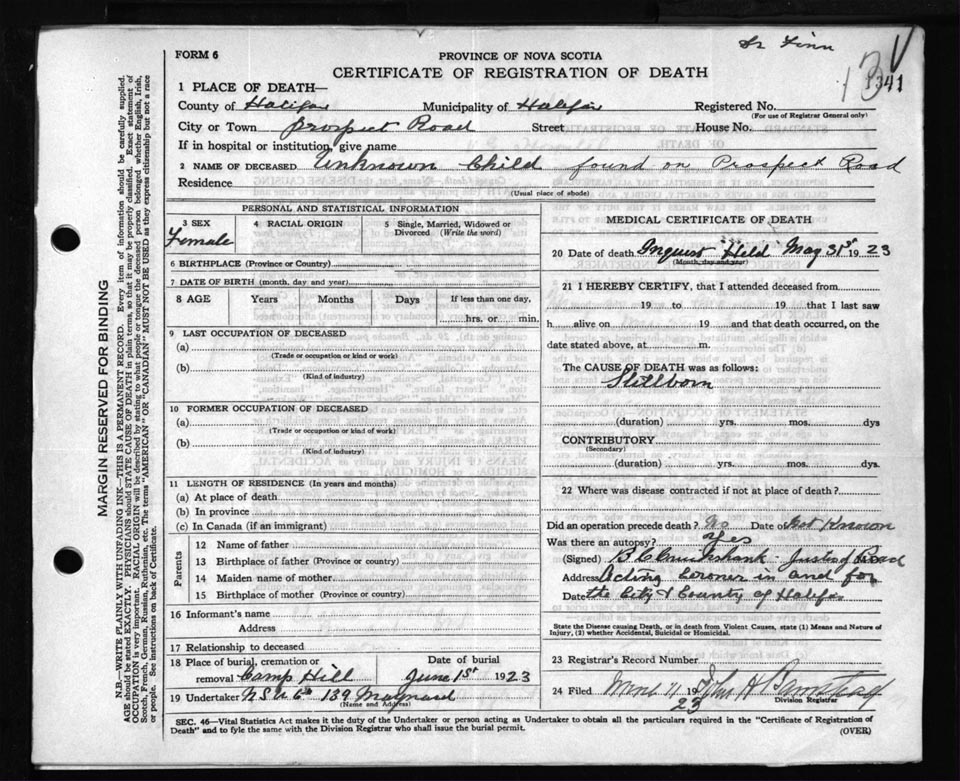 FORM 6
PROVINCE OF NOVA SCOTIA
CERTIFICATE OF REGISTRATION OF DEATH
1341
1 PLACE OF DEATH—
County of Halifax Municipality of Halifax Registered No.
(For use of Registrar General only)
City or Town Prospect Road Street House No.
If in hospital or institution, give name
2 NAME OF DECEASED Unknown Child found on Prospect Road
Residence
(Usual place of abode)
PERSONAL AND STATISTICAL INFORMATION
3 SEX 4 RACIAL ORIGIN 5 Single, Married, Widowed or Divorced (Write the word)
Female
6 BIRTHPLACE (Province or Country)
7 DATE OF BIRTH (month, day and year)
8 AGE Years Months Days If less than one day,
hrs. or min.
9 LAST OCCUPATION OF DECEASED
(a)
(Trade or occupation or kind or work)
(b)
(Kind of industry)
10 FORMER OCCUPATION OF DECEASED
(a)
(Trade or occupation or kind of work)
(b)
(Kind of industry)
11 LENGTH OF RESIDENCE (In years and months)
(a) At place of death
(b) In province
(c) In Canada (if an immigrant)
Parents
12 Name of father
13 Birthplace of father (Province or country)
14 Maiden name of mother
15 Birthplace of mother (Province or country)
16 Informant's name
Address
17 Relationship to deceased
18 Place of burial, cremation or removal Camp Hill Date of burial June 1st 1923
19 Undertaker N.S.U.Co 139 Maynard
(Name and Address)
MEDICAL CERTIFICATE OF DEATH
20 Date of death Inquest Held May 31st 1923
(Month, day and year)
21 I HEREBY CERTIFY, that I attended deceased from
19 to 19 that I last saw
h alive on 19 and that death occurred, on the
date stated above, at m.
The CAUSE OF DEATH was as follows:
Stillborn
(duration) yrs. mos. dys
CONTRIBUTORY
(Secondary)
(duration) yrs. mos. dys.
22 Where was disease contracted if not at place of death?
Did an operation precede death? No Date of Not Known
Was there an autopsy? Yes
(Signed) B Cruikshank Road
Address Acting Coroner in and for
Date the City & County of Halifax
State the Disease causing Death, or in death from Violent Causes, state (1) Means and Nature of
Injury, (2) whether Accidental, Suicidal or Homicidal.
23 Registrar's Record Number
24 Filed 19 23 John H
Division Registrar
SEC. 46—Vital Statistics Act makes it the duty of the Undertaker or person acting as Undertaker to obtain all the particulars required in the "Certificate of Registration of
Death" and to fyle the same with the Division Registrar who shall issue the burial permit. (OVER)
MARGIN RESERVED FOR BINDING
N.B.—WRITE PLAINLY WITH UNFADING INK—THIS IS A PERMANENT RECORD. Every item of information should be carefully supplied.
AGE should be stated EXACTLY. PHYSICIANS should STATE CAUSE OF DEATH in plain terms, so that it may be properly classified. Exact statement of
OCCUPATION is very important. RACIAL ORIGIN will be described by stating to what people or tongue the deceased person belonged whether English, Irish,
Scotch, French, German, Russian, Ruthenian, etc. The terms "AMERICAN" OR "CANADIAN" MUST NOT BE USED as they express citizenship but not a race
or people. See instructions on back of Certificate.